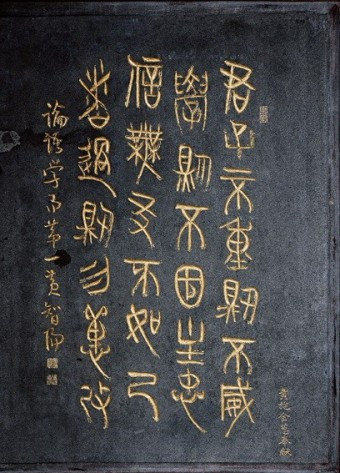 君子不重則不威
學則不固主忠
信無友不如己
者過則勿憚改
論語学而第一黄智陽